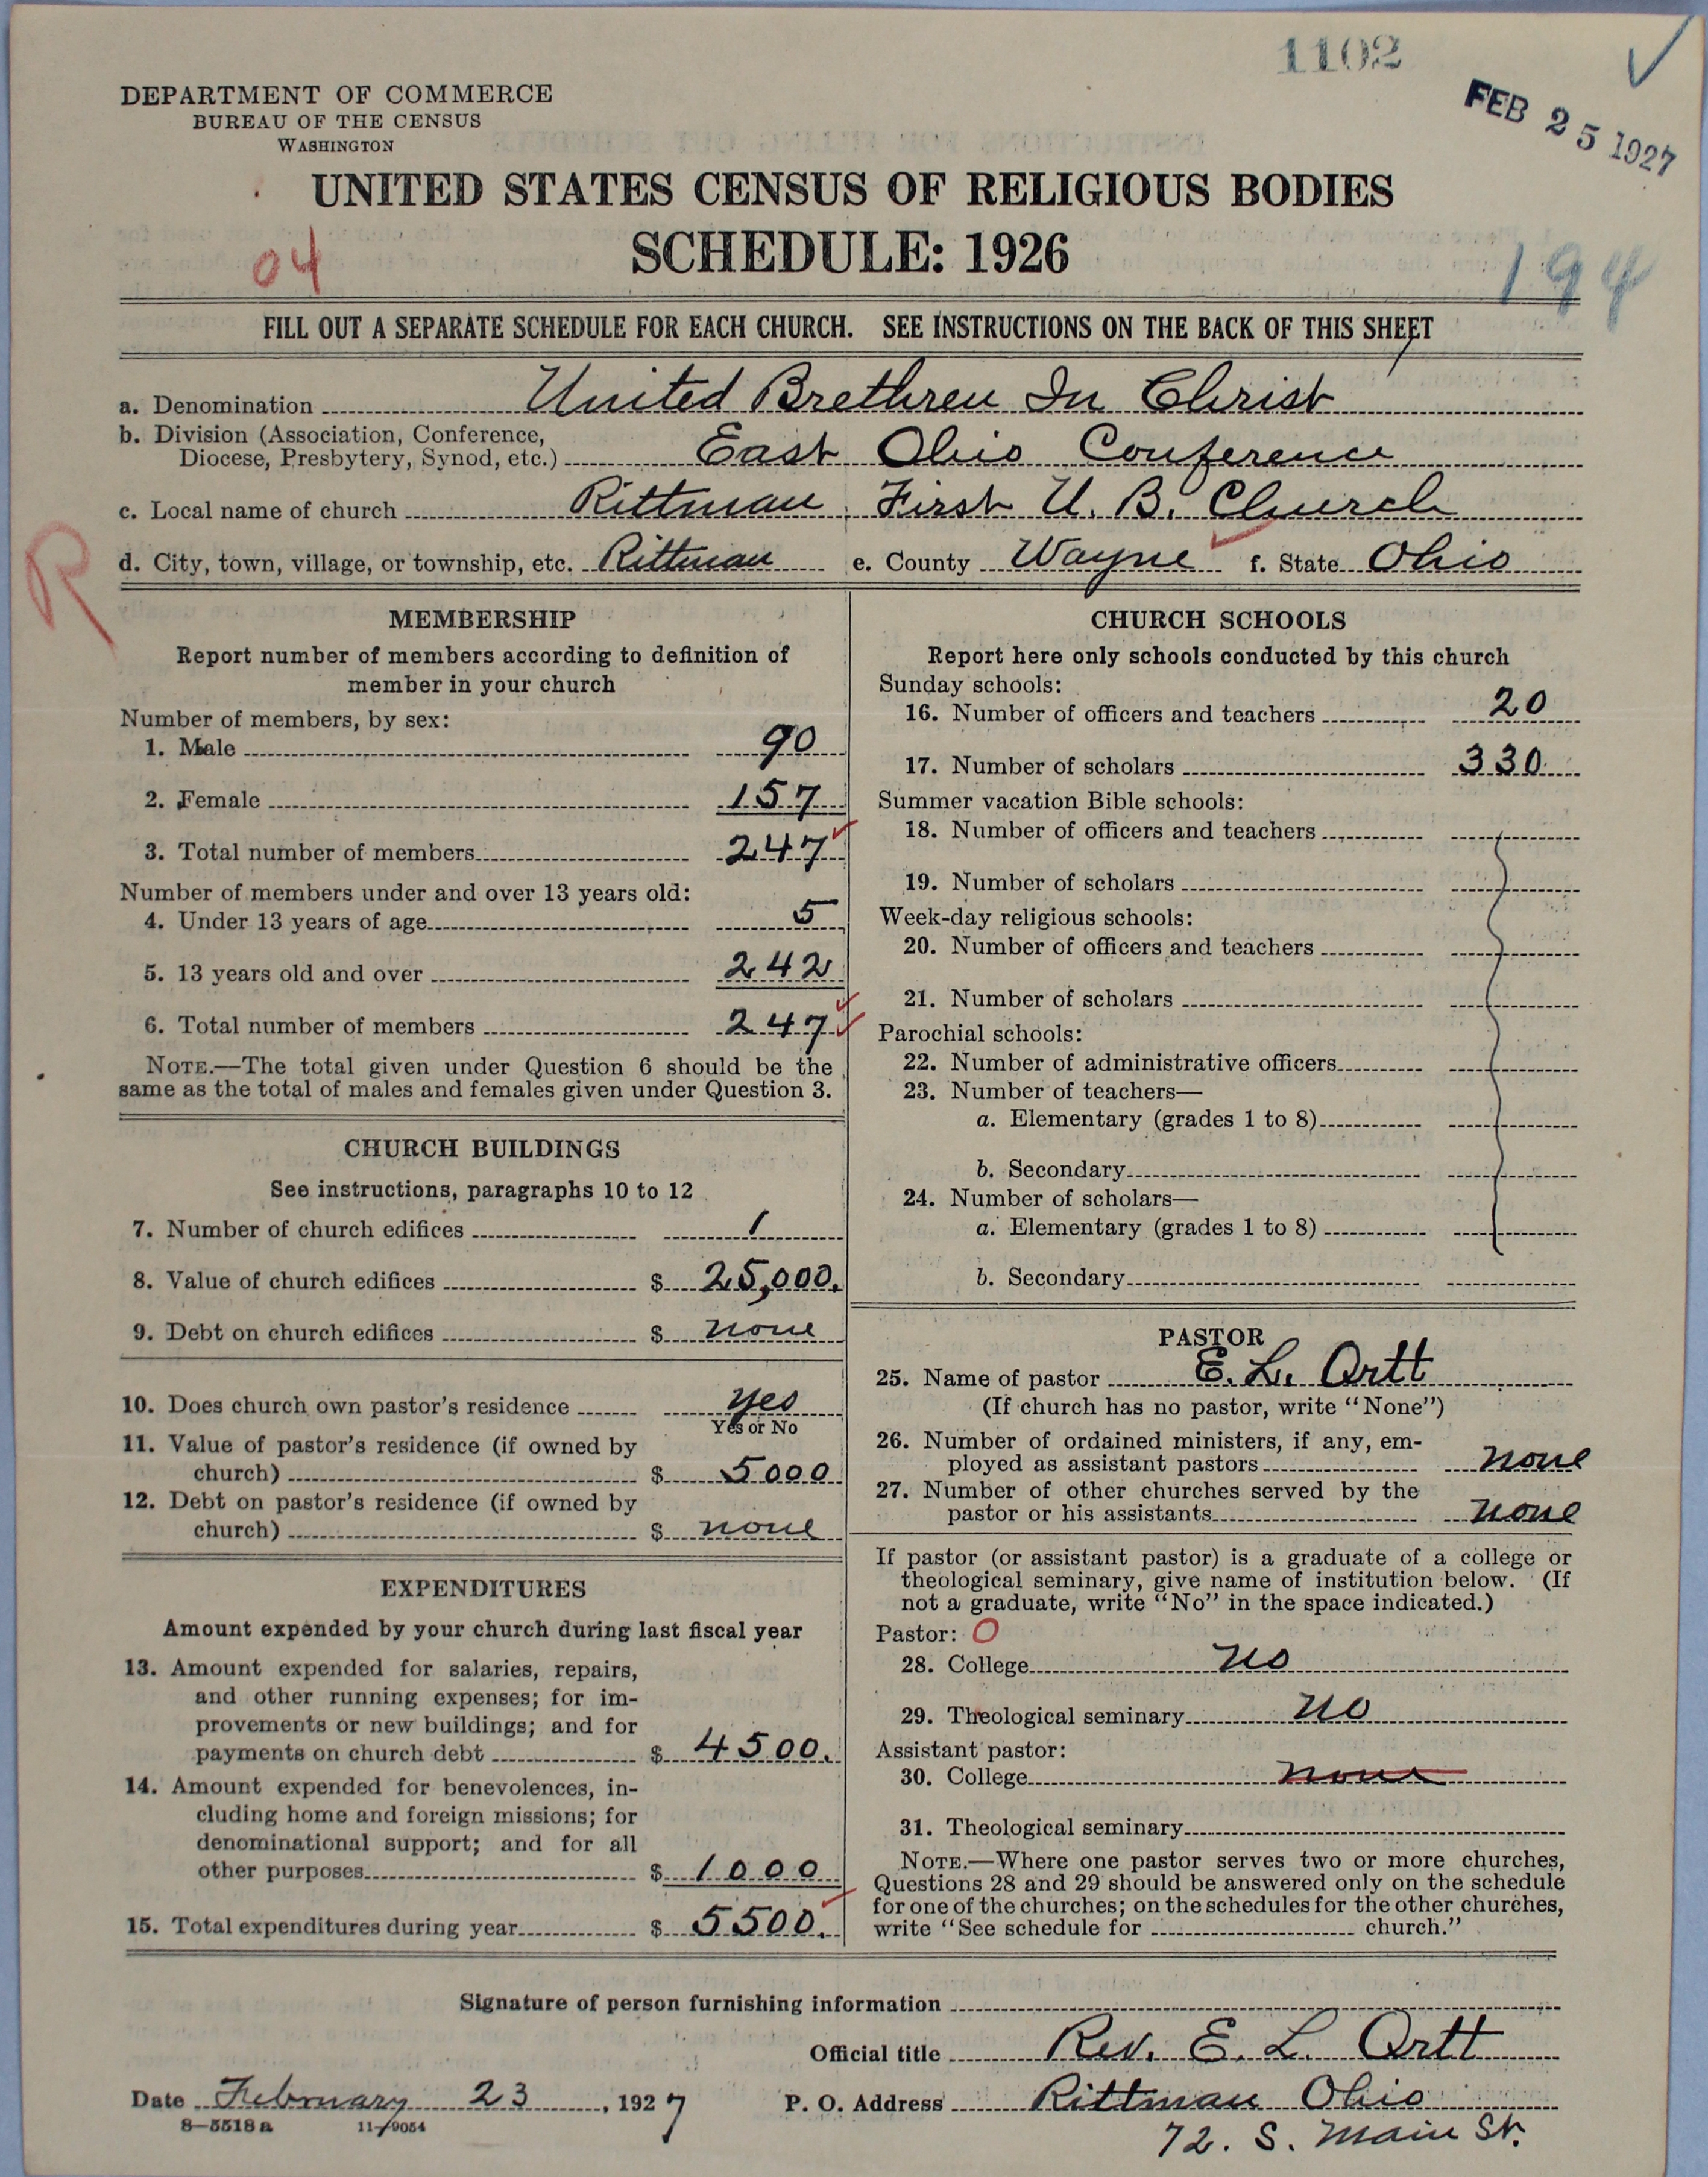 1102
FEB 25 1927
DEPARTMENT OF COMMERCE
BUREAU OF THE CENSUS
WASHINGTON
UNITED STATES CENSUS OF RELIGIOUS BODIES
SCHEDULE: 1926
04
194
FILL OUT A SEPARATE SCHEDULE FOR EACH CHURCH. SEE INSTRUCTIONS ON THE BACK OF THIS SHEET
a. Denomination United Brethren In Christ
b. Division (Association, Conference,
Diocese, Presbytery, Synod, etc.) East Ohio Conference
c. Local name of church Rittman First U. B. Church
R
d. City, town, village, or township, etc. Rittman e. County Wayne f. State Ohio
MEMBERSHIP
Report number of members according to definition of
member in your church
Number of members, by sex:
1. Male 90
2. Female 157
3. Total number of members 247
Number of members under and over 13 years old:
4. Under 13 years of age 5
5. 13 years old and over 242
6. Total number of members 247
NOTE.—The total given under Question 6 should be the
same as the total of males and females given under Question 3.
CHURCH BUILDINGS
See instructions, paragraphs 10 to 12
7. Number of church edifices 1
8. Value of church edifices $ 25,000.
9. Debt on church edifices $ none
10. Does church own pastor's residence yes
Yes or No
11. Value of pastor's residence (if owned by
church) $ 5000
12. Debt on pastor's residence (if owned by
church) $ none
EXPENDITURES
Amount expended by your church during last fiscal year
13. Amount expended for salaries, repairs,
and other running expenses; for im-
provements or new buildings; and for
payments on church debt $ 4500.
14. Amount expended for benevolences, in-
cluding home and foreign missions; for
denominational support; and for all
other purposes $ 1000
15. Total expenditures during year $ 5500.
CHURCH SCHOOLS
Report here only schools conducted by this church
Sunday schools:
16. Number of officers and teachers 20
17. Number of scholars 330
Summer vacation Bible schools:
18. Number of officers and teachers
19. Number of scholars
Week-day religious schools:
20. Number of officers and teachers
21. Number of scholars
Parochial schools:
22. Number of administrative officers
23. Number of teachers—
a. Elementary (grades 1 to 8)
b. Secondary
24. Number of scholars—
a. Elementary (grades 1 to 8)
b. Secondary
PASTOR
25. Name of pastor E. L. Ortt
(If church has no pastor, write "None")
26. Number of ordained ministers, if any, em-
ployed as assistant pastors none
27. Number of other churches served by the
pastor or his assistants none
If pastor (or assistant pastor) is a graduate of a college or
theological seminary, give name of institution below. (If
not a graduate, write "No" in the space indicated.)
Pastor: O
28. College no
29. Theological seminary no
Assistant pastor:
30. College none
31. Theological seminary
NOTE.—Where one pastor serves two or more churches,
Questions 28 and 29 should be answered only on the schedule
for one of the churches; on the schedules for the other churches,
write "See schedule for church."
Signature of person furnishing information
Official title Rev. E. L. Ortt
Date February 23, 1927 P. O. Address Rittman Ohio
8-5518a 11-9054
72. S. Main St.